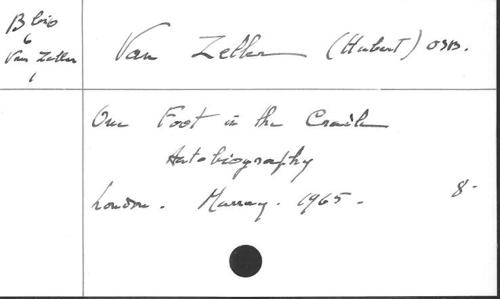 B bio
6
Van Zeller
1
Van Zeller (Hubert) OSB.
One Foot in the Cradle
Autobiography
London. Murray. 1965.
8-